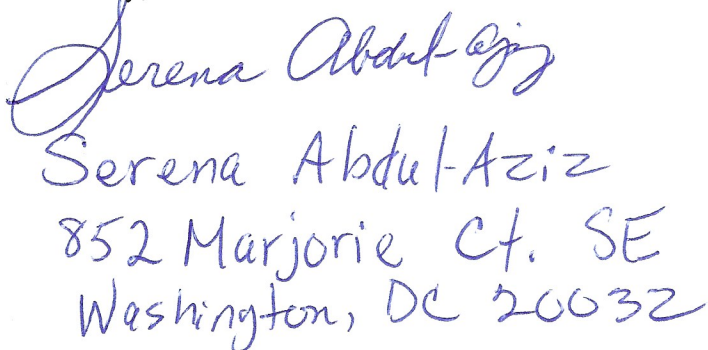 Serena Abdul-Aziz
Serena Abdul-Aziz
852 Marjorie Ct. SE
Washington, DC 20032